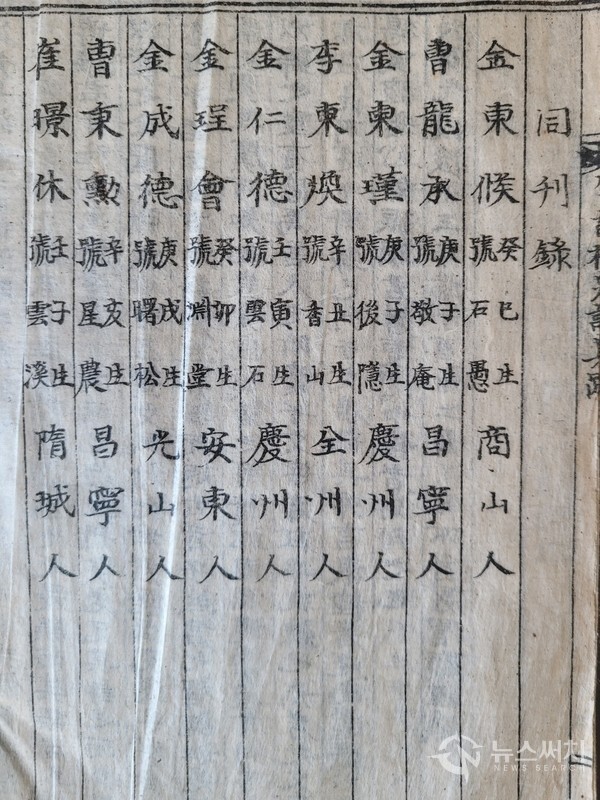 同刊錄
金東候 癸巳生 號石愚 商山人
曹龍承 庚子生 號敬庵 昌寧人
金東瑾 庚子生 號後隱 慶州人
李東煥 辛丑生 號香山 全州人
金仁德 壬寅生 號雲石 慶州人
金珵會 癸卯生 號淵堂 安東人
金成德 庚戌生 號曙松 光山人
曹秉勳 辛亥生 號星農 昌寧人
崔暻休 壬子生 號雲溪 隋城人
뉴스써치
NEWS SEARCH